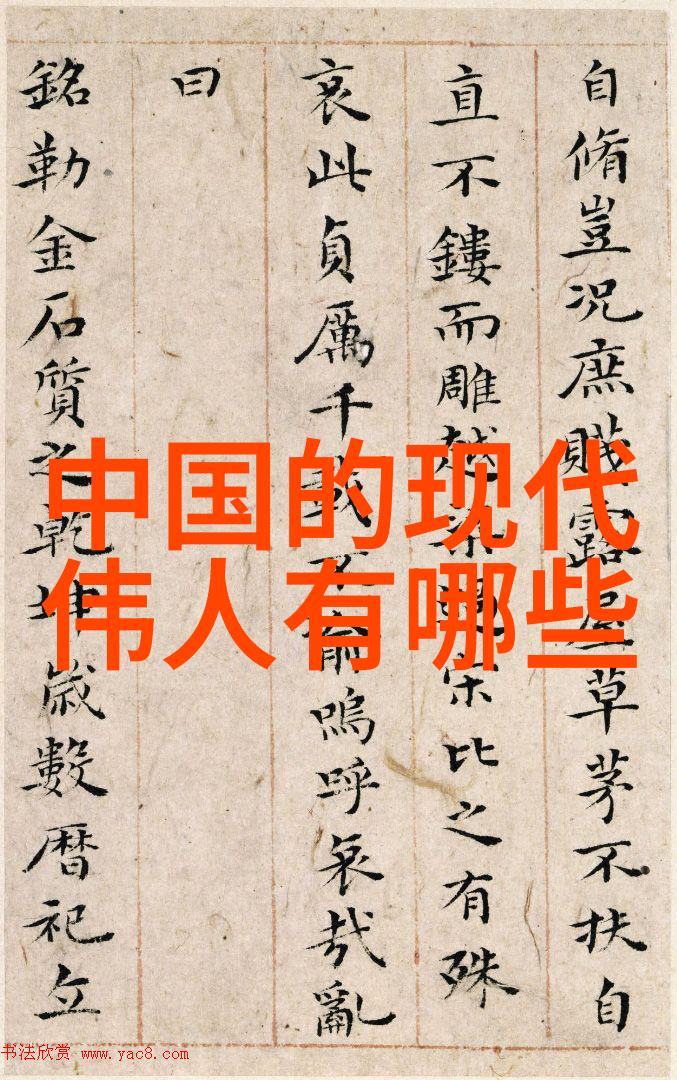 中国的现代
伟人有哪些
自脩豈况庶賤露屋草茅不扶自
直不鏤而雕越梁過宋比之有殊
哀此貞厲千載不渝嗚呼哀哉亂
曰
銘勒金石質之乾坤歲數曆祀立
书法欣赏 www.yac8.com